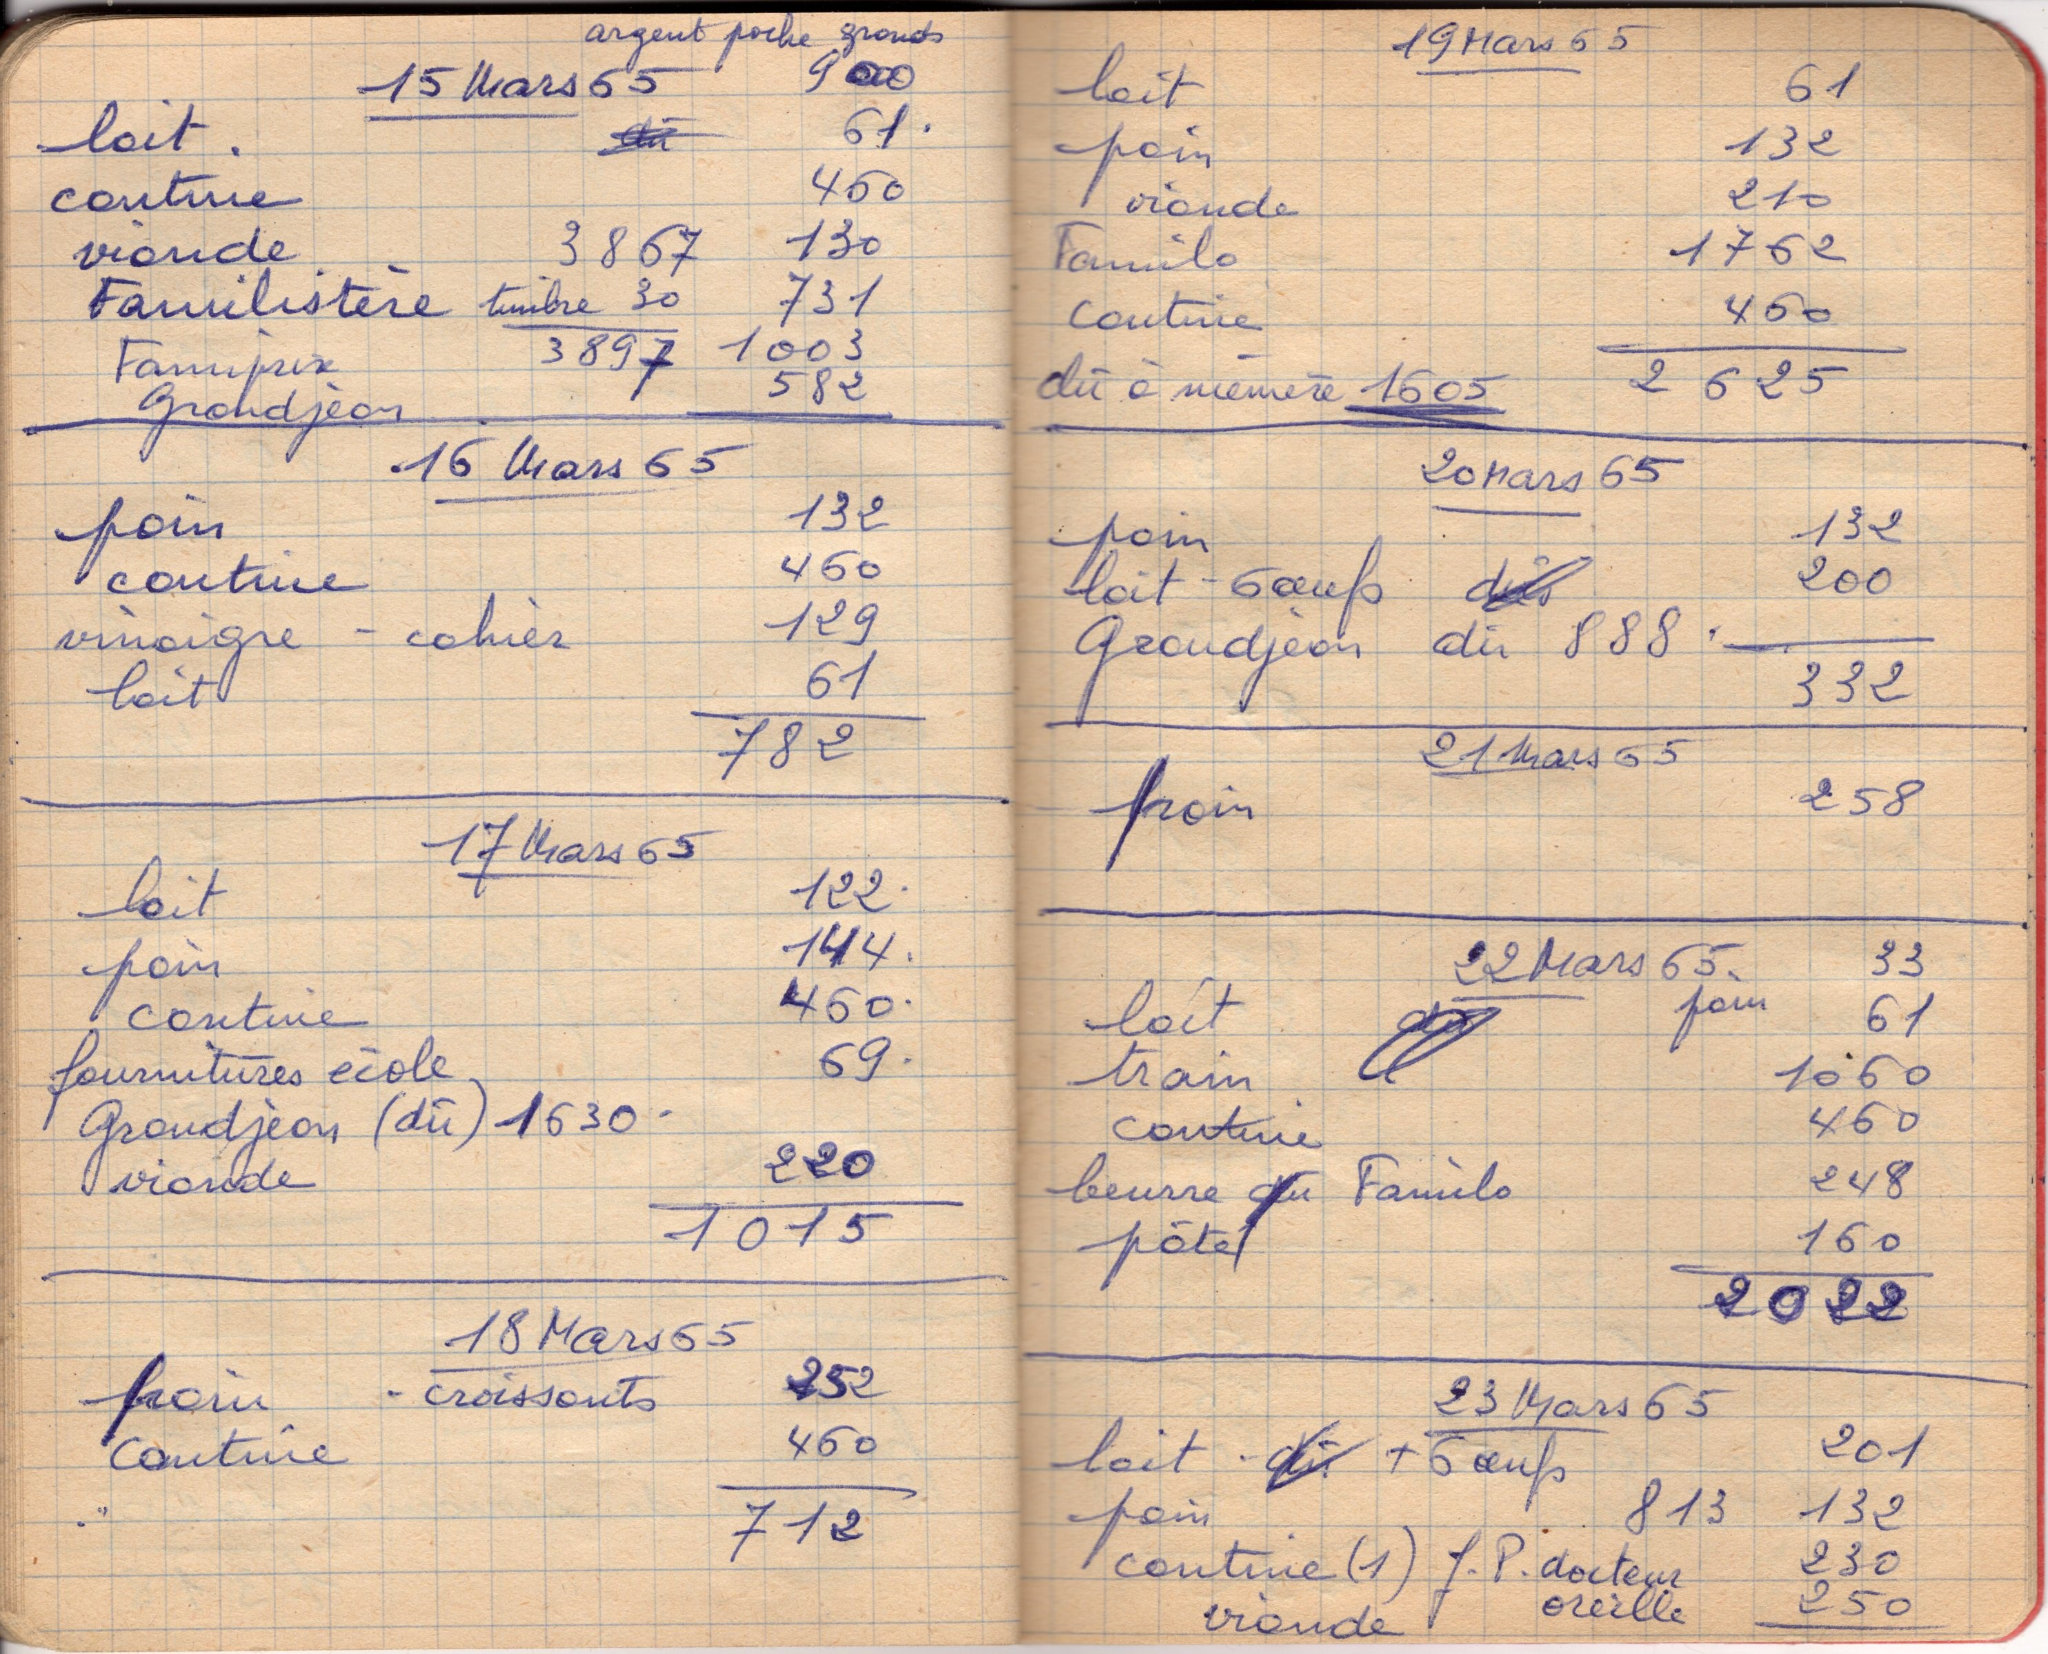 argent poche grands
15 Mars 65 900
lait . dû 61.
cantine 460
viande 3867 130
Familistère timbre 30 731
Famiprix 3897 1003
Grandjean 582
16 Mars 65
pain 132
cantine 460
vinaigre - cahier 129
lait 61
782
17 Mars 65
lait 122.
pain 144.
cantine 460.
fournitures école 69.
Grandjean (dû) 1630.
viande 220
1015
18 Mars 65
pain - croissants 252
cantine 460
712
19 Mars 65
lait 61
pain 132
viande 210
Familo 1762
cantine 460
dû à mémère 1605 2625
20 Mars 65
pain 132
lait - 6 œufs dûs 200
Grandjean dû 888.
332
21 Mars 65
pain 258
22 Mars 65. 33
lait dû pain 61
train 1060
cantine 460
beurre du Familo 248
pâté 160
2022
23 Mars 65
lait - dû + 6 œufs 201
pain 813 132
cantine (1) J.P. docteur 230
viande oreille 250